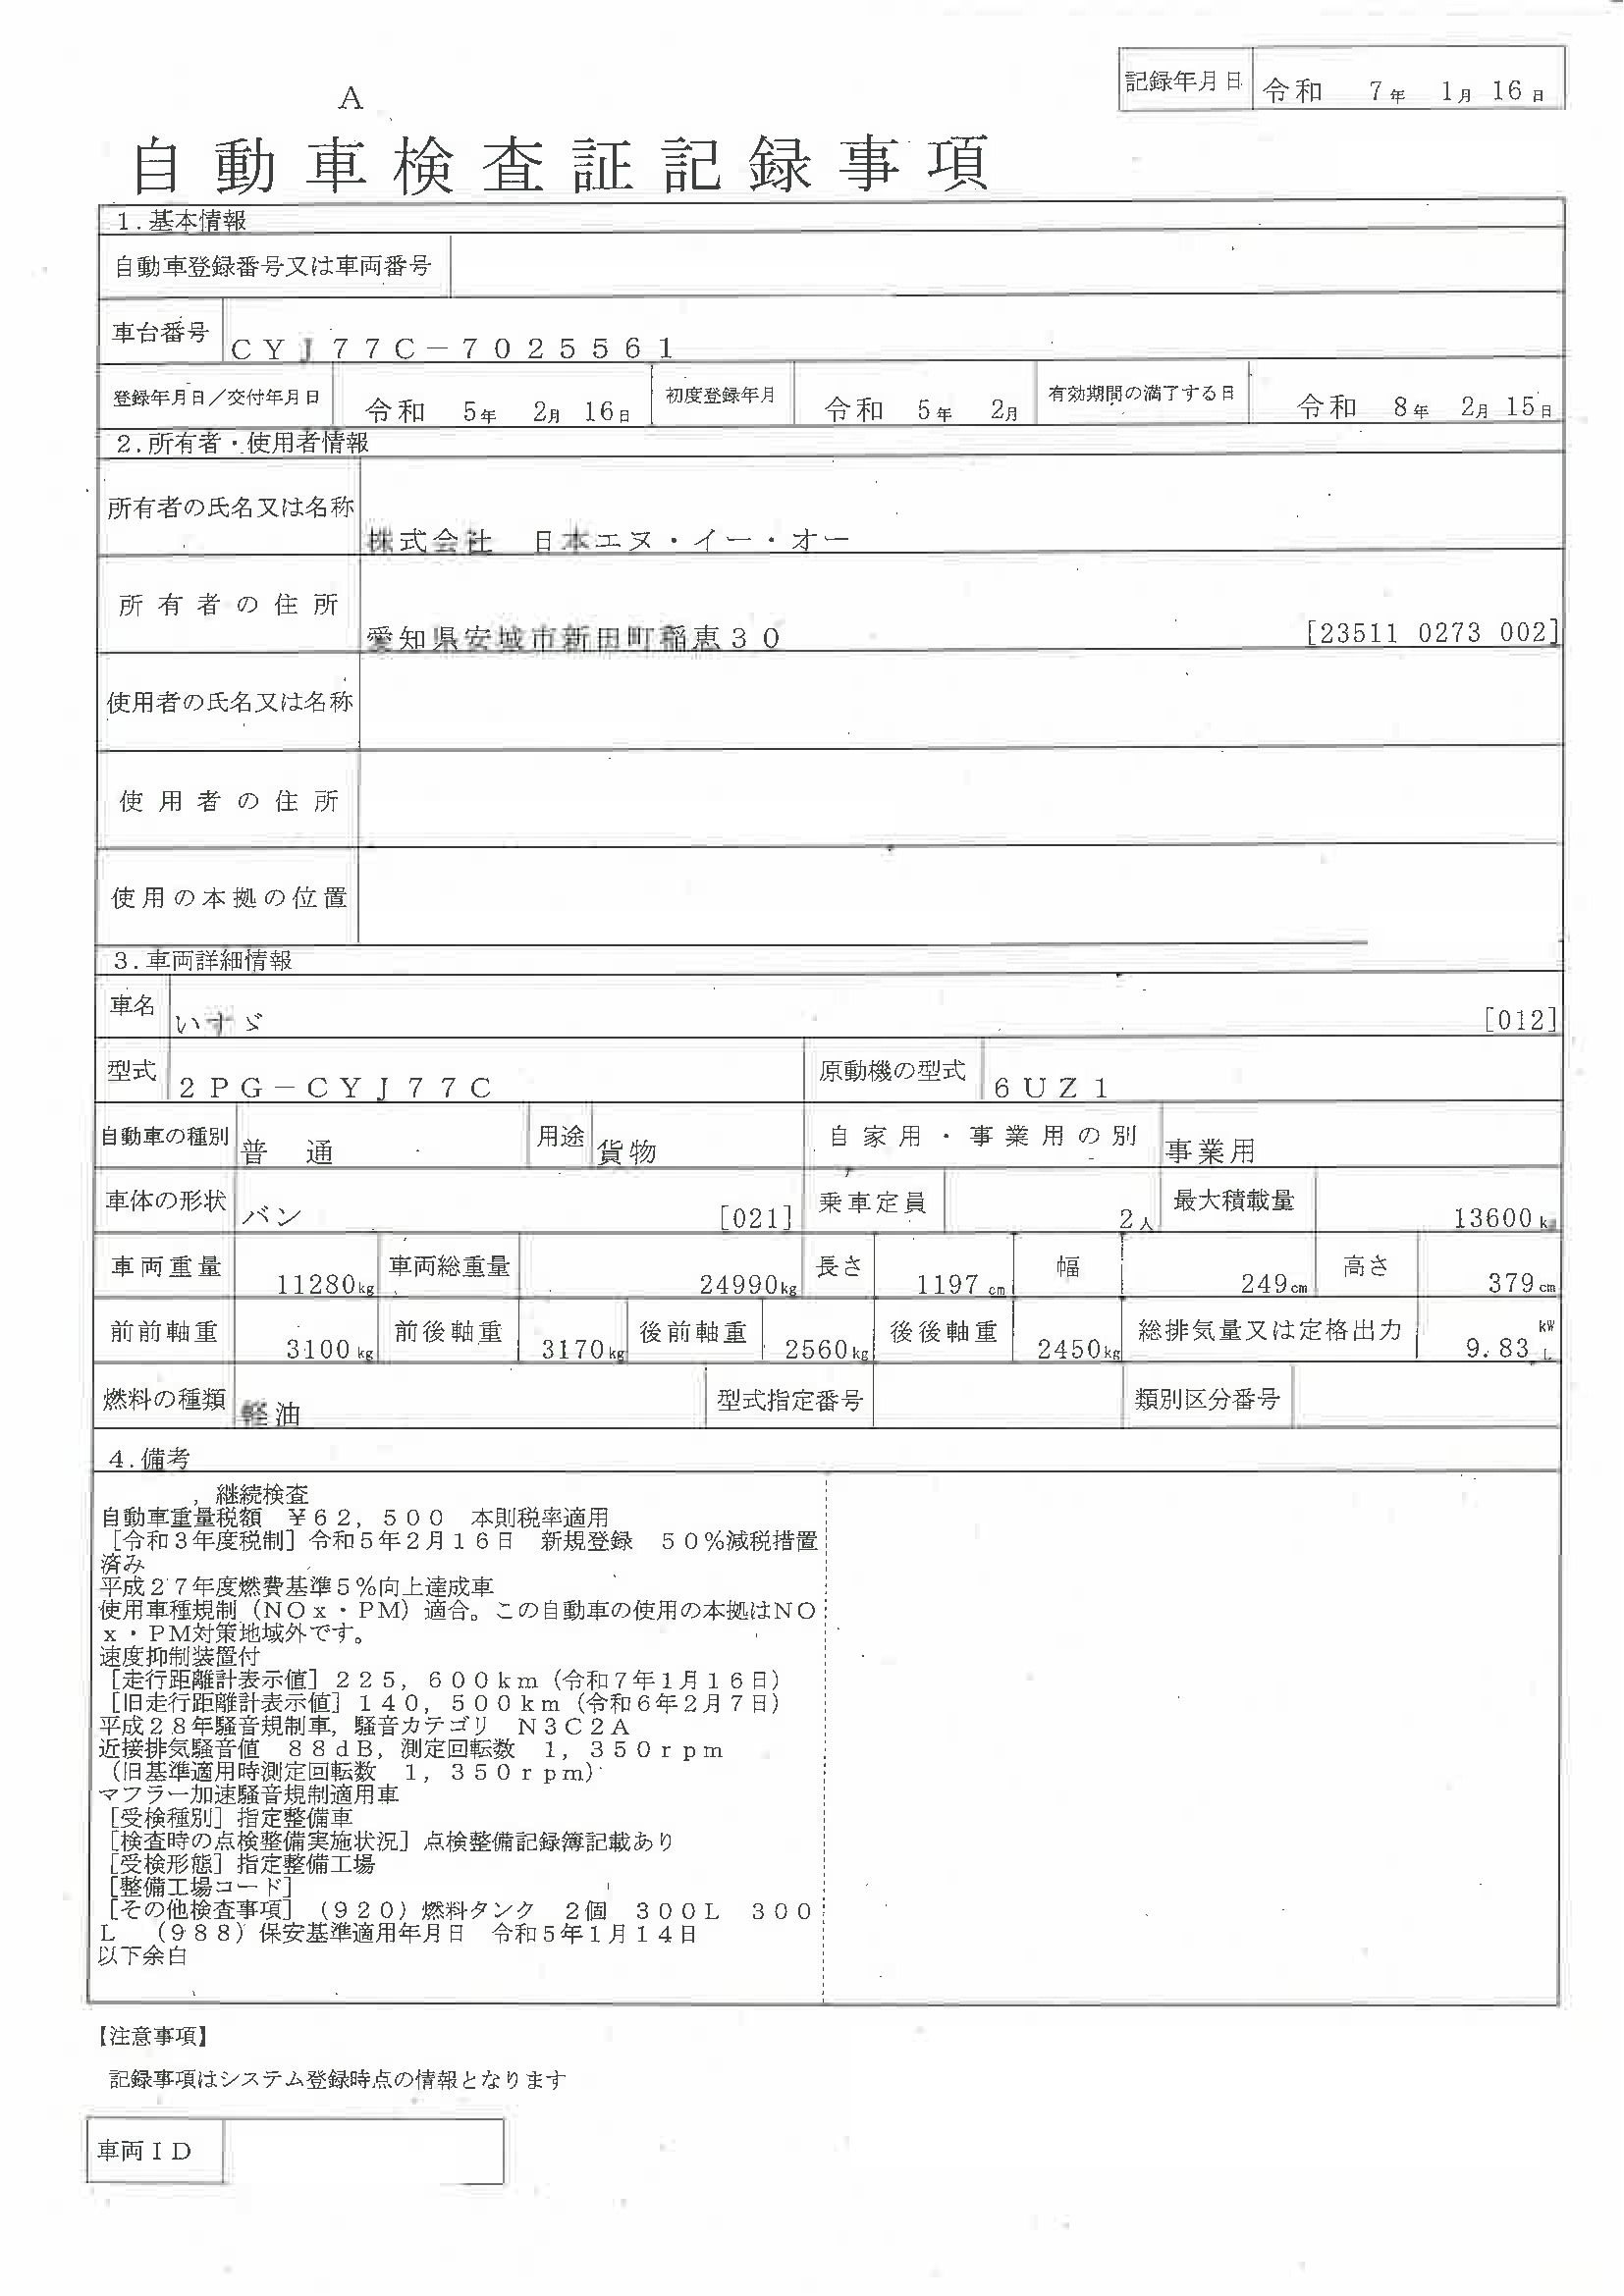 A
記録年月日 令和 7年 1月 16日
自動車検査証記録事項
1.基本情報
自動車登録番号又は車両番号
車台番号 CYJ77C-7025561
登録年月日/交付年月日 令和 5年 2月 16日 初度登録年月 令和 5年 2月 有効期間の満了する日 令和 8年 2月 15日
2.所有者・使用者情報
所有者の氏名又は名称 株式会社 日本エヌ・イー・オー
所有者の住所 愛知県安城市新田町稲恵30 [23511 0273 002]
使用者の氏名又は名称
使用者の住所
使用の本拠の位置
3.車両詳細情報
車名 いすゞ [012]
型式 2PG-CYJ77C 原動機の型式 6UZ1
自動車の種別 普通 用途 貨物 自家用・事業用の別 事業用
車体の形状 バン [021] 乗車定員 2人 最大積載量 13600kg
車両重量 11280kg 車両総重量 24990kg 長さ 1197cm 幅 249cm 高さ 379cm
前前軸重 3100kg 前後軸重 3170kg 後前軸重 2560kg 後後軸重 2450kg 総排気量又は定格出力 9.83 kW L
燃料の種類 軽油 型式指定番号 類別区分番号
4.備考
,継続検査
自動車重量税額 ¥62,500 本則税率適用
[令和3年度税制]令和5年2月16日 新規登録 50%減税措置
済み
平成27年度燃費基準5%向上達成車
使用車種規制(NOx・PM)適合。この自動車の使用の本拠はNO
x・PM対策地域外です。
速度抑制装置付
[走行距離計表示値]225,600km(令和7年1月16日)
[旧走行距離計表示値]140,500km(令和6年2月7日)
平成28年騒音規制車,騒音カテゴリ N3C2A
近接排気騒音値 88dB,測定回転数 1,350rpm
(旧基準適用時測定回転数 1,350rpm)
マフラー加速騒音規制適用車
[受検種別]指定整備車
[検査時の点検整備実施状況]点検整備記録簿記載あり
[受検形態]指定整備工場
[整備工場コード]
[その他検査事項](920)燃料タンク 2個 300L 300
L (988)保安基準適用年月日 令和5年1月14日
以下余白
【注意事項】
記録事項はシステム登録時点の情報となります
車両ID